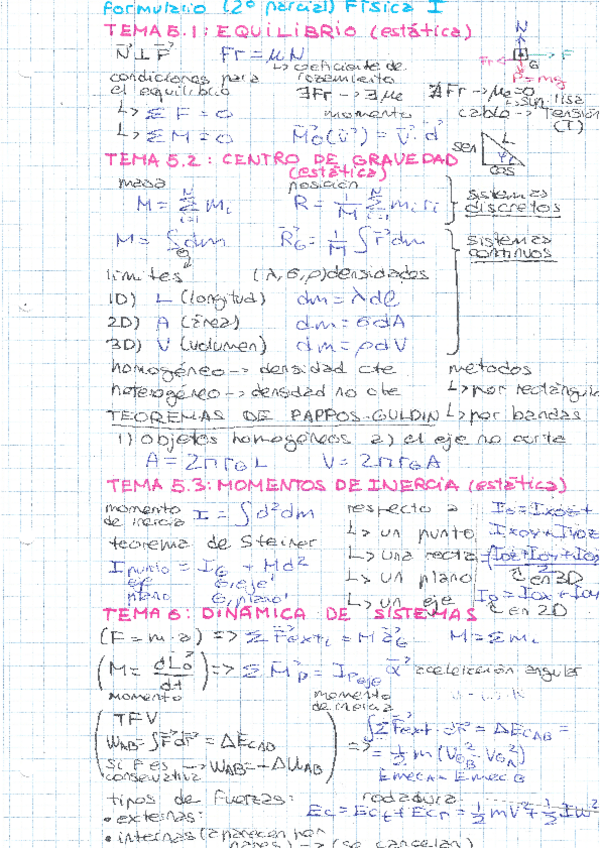 formulario (2º parcial) Física I
TEMA 5.1: EQUILIBRIO (estática)
N⃗ ⊥ F⃗ Fr = μN
↳ coeficiente de rozamiento
condiciones para el equilibrio
∃Fr → ∃μe ∄Fr → μe=0
↳ sup. lisa
N
Fr F
G
P=mg
cable → Tensión (T)
↳ Σ F = 0 momento
↳ Σ M = 0 M⃗o(v⃗) = v⃗ · d⃗
sen L φ cos
TEMA 5.2: CENTRO DE GRAVEDAD (estática)
masa posición
M = Σ mi R = 1/M Σ mi ri sistemas discretos
M = ∫ dm R⃗G = 1/M ∫ r⃗ dm sistemas continuos
límites (λ, σ, ρ) densidades
1D) L (longitud) dm = λdl
2D) A (área) dm = σdA
3D) V (volumen) dm = ρdV
homogéneo → densidad cte métodos
heterogéneo → densidad no cte ↳ por rectángula
TEOREMAS DE PAPPOS-GULDIN ↳ por bandas
1) objetos homogéneos 2) el eje no corte
A = 2πrG L V = 2πrG A
TEMA 5.3: MOMENTOS DE INERCIA (estática)
momento de inercia I = ∫ d² dm respecto a: Io = Ixoz +
teorema de Steiner ↳ un punto Ixoy + Iyoz
I punto = IG + Md² ↳ una recta (Ioz+Ioy+Iox
eje G, eje' ↳ un plano en 3D
plano G, plano' ↳ un eje Io = Iox + Ioy
en 2D
TEMA 6: DINÁMICA DE SISTEMAS
(F = m·a) => Σ F⃗ext = M a⃗G M = Σ mi
(M = dL⃗o/dt) => Σ M⃗p = I p eje α⃗ aceleración angular
momento momento de inercia
TFV
WAB = ∫F⃗dr⃗ = ΔEcAB
si F es conservativa → WAB = -ΔUAB
=> ∫ΣF⃗ext · dr⃗ = ΔEcAB =
= ½ m (VGB² - VGA²)
EmecA - EmecB
tipos de fuerzas: rodadura
• externas: Ec = Ect + Ecr = ½ mV² + ½ Iω²
• internas (aparecen por
pares) → (se cancelan)